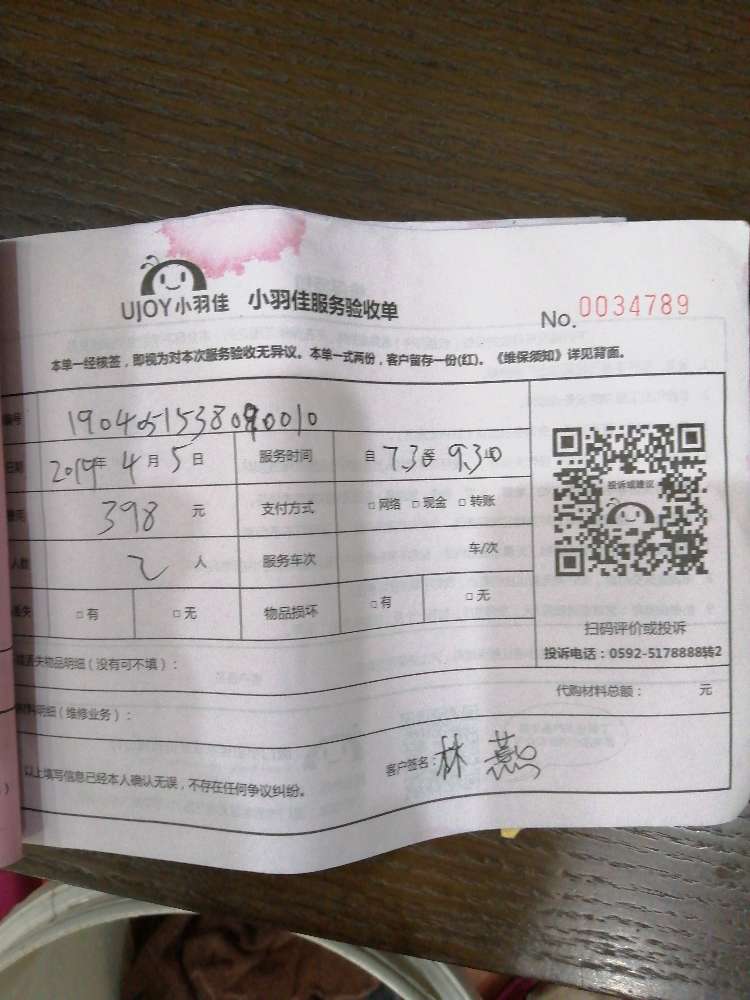 UJOY小羽佳 小羽佳服务验收单
No. 0034789
本单一经核签，即视为对本次服务验收无异议。本单一式两份，客户留存一份(红)。《维保须知》详见背面。
编号 1904051538090010
日期 2019年 4月 5日 服务时间 自 7.30至 9.30
398 元 支付方式 □网络 □现金 □转账
人数 2 人 服务车次 车/次
丢失 □有 □无 物品损坏 □有 □无
投诉或建议
扫码评价或投诉
投诉电话：0592-5178888转2
丢失物品明细（没有可不填）：
代购材料总额： 元
明细（维修业务）：
以上填写信息已经本人确认无误，不存在任何争议纠纷。
客户签名：林燕